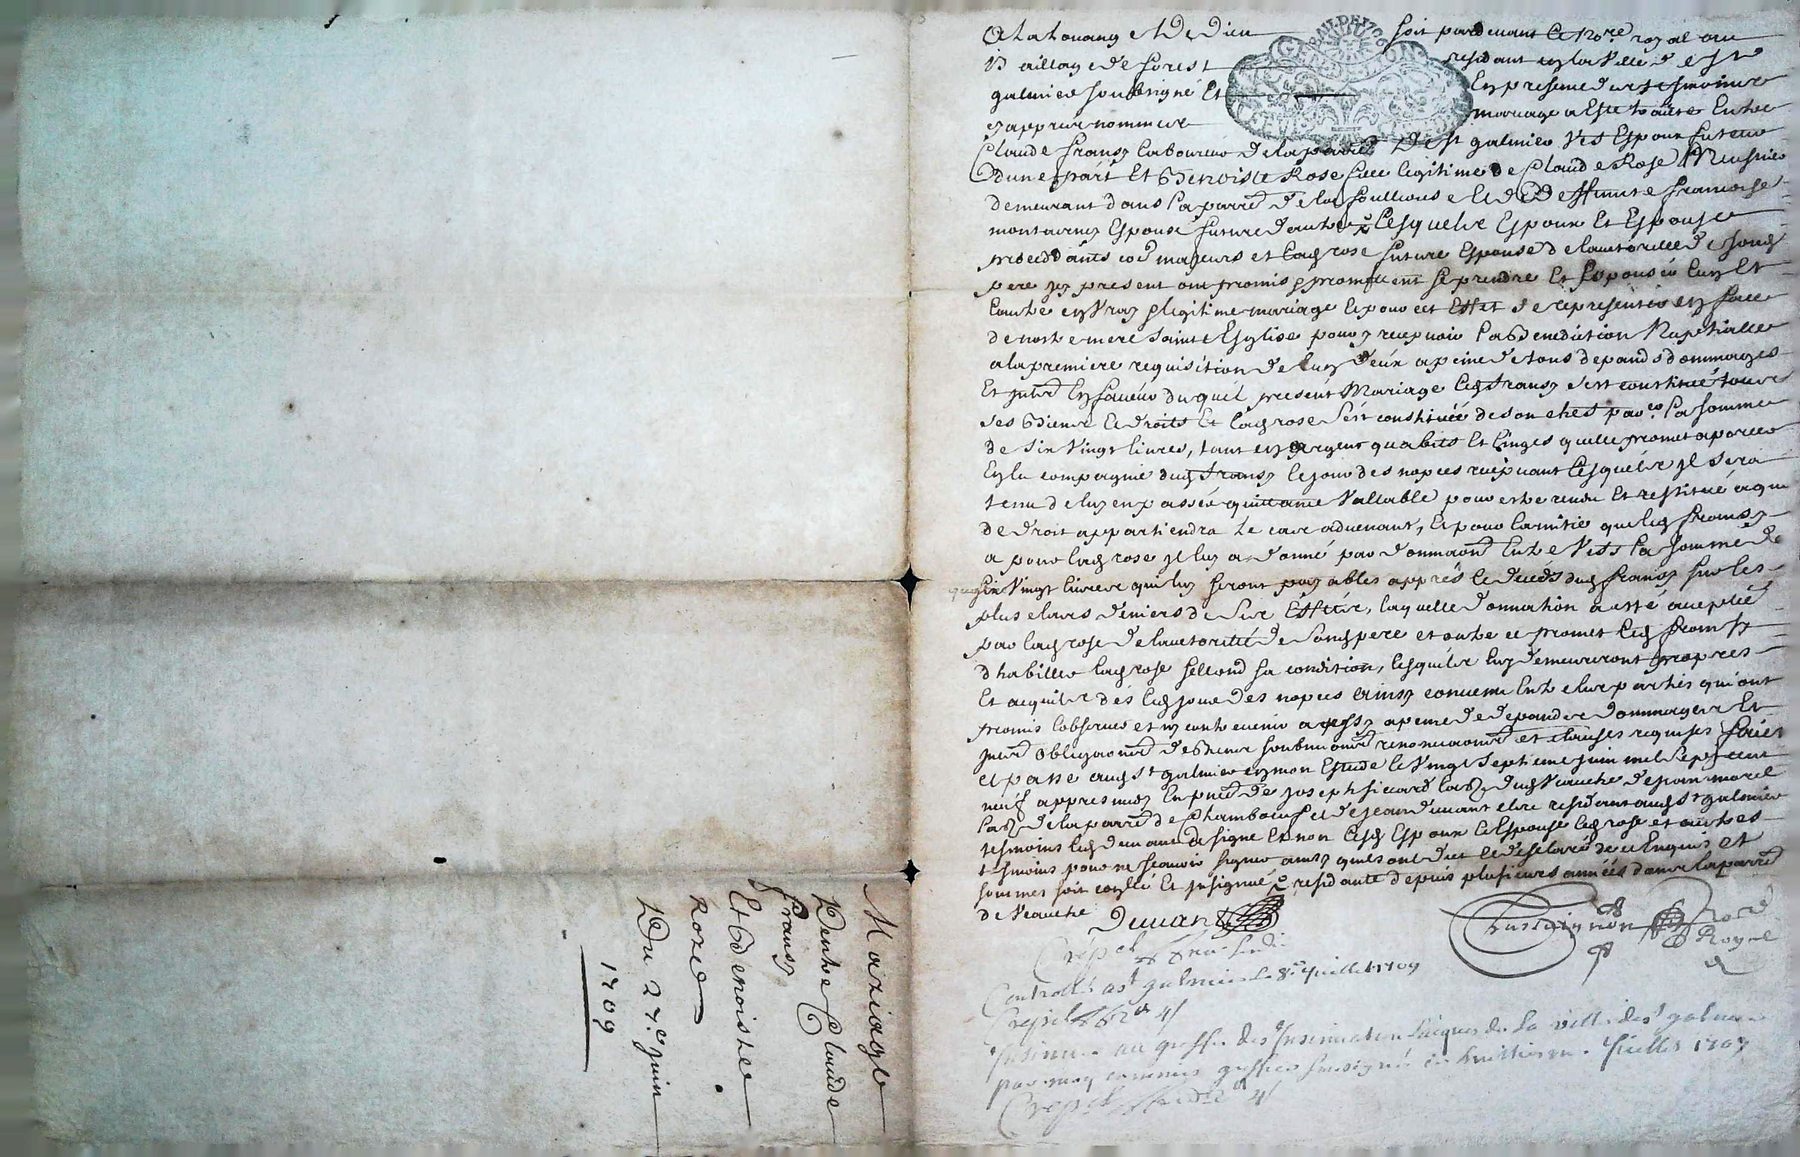 A la Louange de Dieu soit pardevant le no.re royal au
Bailliage de forest residant en la Ville de St
galmier soubsigné Et En presence des tesmoins
cy appres nommes mariage a Esté traitté Entre
Claude fransy laboureur de la parr.e de St galmier Espoux futeur
d'une part Et Benoiste Rose fille legitime de Claude Rose Meusnier
demeurant dans la parr.e de la fouillouse et de deffunte francoise
Espouse future d'autre Lesquels Espoux Et Espouse
procedants majeurs et lad rose future Espouse de l'autorité de son
pere icy present ont promis promettent se prendre Et Espouser L'un Et
L'autre en vray legitime mariage Et pour cet Effet se representer en face
de nostre mere sainte Esglise pour y recepvoir la Benediction Nuptialle
a la premiere requisition de l'un d'eux a peine de tous depands dommages
Et En faveur duquel present Mariage led fransy s'est constitué tous
ses Biens Et droits Et lad rose s'est constituée de son chef la somme
de six vingt livres, tant en argent qu'abits Et linges qu'elle promet aporter
En la compagnie dud fransy le jour des nopces recepvant lesquels il sera
tenu de luy en passer quittance Vallable pour estre rendu Et restitué a qui
de droit appartiendra le cas advenant, Et pour l'amitié que led fransy
a pour lad rose il luy a donné par donnaon Entre Vifs la somme de
six Vingt livres qui luy seront payables appres le deceds dud fransy sur les
plus clairs deniers de ses Effets, laquelle donnation a esté acceptée
par lad rose de l'autorité de sond pere et outre ce promet led fransy
d'habiller lad rose sellond sa condition, lesquels luy demeureront propres
Et acquis dés led jour des nopces ainsy convenu Entre les parties qui ont
promis l'observer et n'y contrevenir a peine de depands dommages Et
obligaon de Biens soubmaon renonciaon et clauses requises fait
et passé aud St galmier en mon Estude le Vingt septieme juin mil sept cent
neuf appres midy En pnce de joseph sicard lab.r dud Veauche
lab.r de la parr.e de Chambœuf et de jean devant clerc residant aud St galmier
tesmoins led devant a signé Et non lesd Espoux Et Espouse led rose et autres
tesmoins pour ne scavoir signer ainsy qu'ils ont dit et declaré de ce Enquis et
sommes soit controllé Et insignué residante depuis plusieurs années dans la parr.e
de Veauche Devant
no.re
Royal
Controllé a St galmier le 8e Juillet 1709
Crespet
Insinué au greffe des Insinuations Laiques de la ville de St galmier
par moy commis greffier soussigné ce huittiesme Juillet 1709
Crespet
Mariage
D'entre Claude
fransy
Et Benoiste
Roze
Du 27.e juin
1709